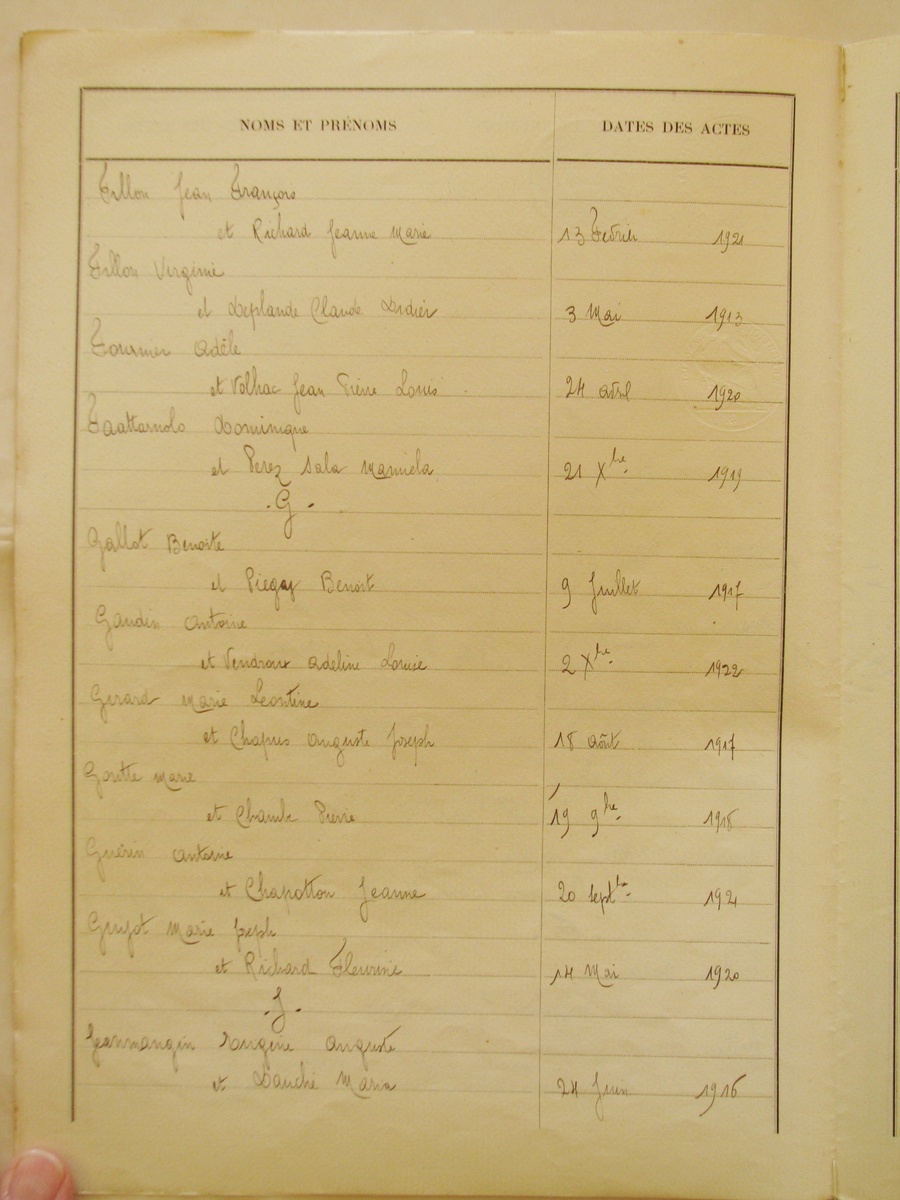 NOMS ET PRÉNOMS DATES DES ACTES
Fillon Jean François
et Richard Jeanne Marie 13 Fevrier 1921
Fillon Virginie
et Deplande Claude Didier 3 Mai 1913
Fournier Adèle
et Volhac Jean Pierre Louis 24 Avril 1920
Dominique
et Perez Sala Manuela 21 Xbre 1919
. G .
Gallot Benoite
et Piegay Benoit 9 Juillet 1917
Gaudin Antoine
et Vendroux Adeline Louise 2 Xbre 1922
Gerard Marie Leontine
et Chapuis Auguste Joseph 18 Août 1917
Goutte Marie
et Chambe Pierre 19 9bre 1918
Guérin Antoine
et Chapotton Jeanne 20 Septbre 1921
Guyot Marie Joseph
et Richard Fleurine 14 Mai 1920
. J .
Jeanmangin Auguste
et Dauché Maria 24 Juin 1916